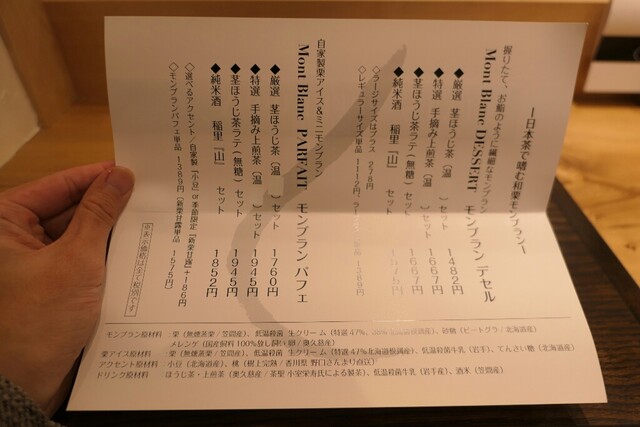 ー日本茶で嗜む和栗モンブランー
握りたて、お鮨のように繊細なモンブラン
Mont Blanc DESSERT モンブラン デセル
◆厳選 茎ほうじ茶（温 ）セット 1482円
◆特選 手摘み上煎茶（温 ）セット 1667円
◆茎ほうじ茶ラテ（無糖）セット 1667円
◆純米酒 稲里『山』 セット 1575円
◇ラージサイズはプラス 278円
◇レギュラーサイズ単品 1112円 ラージ 単品 1389円
自家製栗アイス&ミニモンブラン
Mont Blanc PARFAIT モンブラン パフェ
◆厳選 茎ほうじ茶（温 ）セット 1760円
◆特選 手摘み上煎茶（温 ）セット 1945円
◆茎ほうじ茶ラテ（無糖）セット 1945円
◆純米酒 稲里『山』 セット 1852円
◇選べるアクセント／自家製『小豆』or 季節限定『新栗甘露』+186円
◇モンブランパフェ単品 1389円（新栗甘露単品 1575円）
※表示価格は全て税別です
モンブラン原材料 : 栗（無糖蒸栗／笠間産）、低温殺菌 生クリーム（特選47%、）、砂糖（ビートグラ／北海道産）
メレンゲ（国産飼料100%放し飼い卵／奥久慈産）
栗アイス原材料 : 栗（無糖蒸栗／笠間産）、低温殺菌 生クリーム（特選47%北海道根釧産）、低温殺菌牛乳（岩手）、てんさい糖（北海道産）
アクセント原材料 : 小豆（北海道産）、桃（樹上完熟／香川県 野口さんより直送）
ドリンク原材料 : ほうじ茶・上煎茶（奥久慈産／茶聖 小室栄寿氏による製茶）、低温殺菌牛乳（岩手産）、酒米（笠間産）